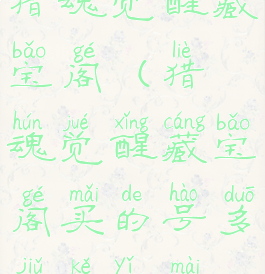 猎魂觉醒藏
bǎo gé liè
宝阁（猎
hún jué xǐng cáng bǎo
魂觉醒藏宝
gé mǎi de hào duō
阁买的号多
jiǔ kě yǐ mài